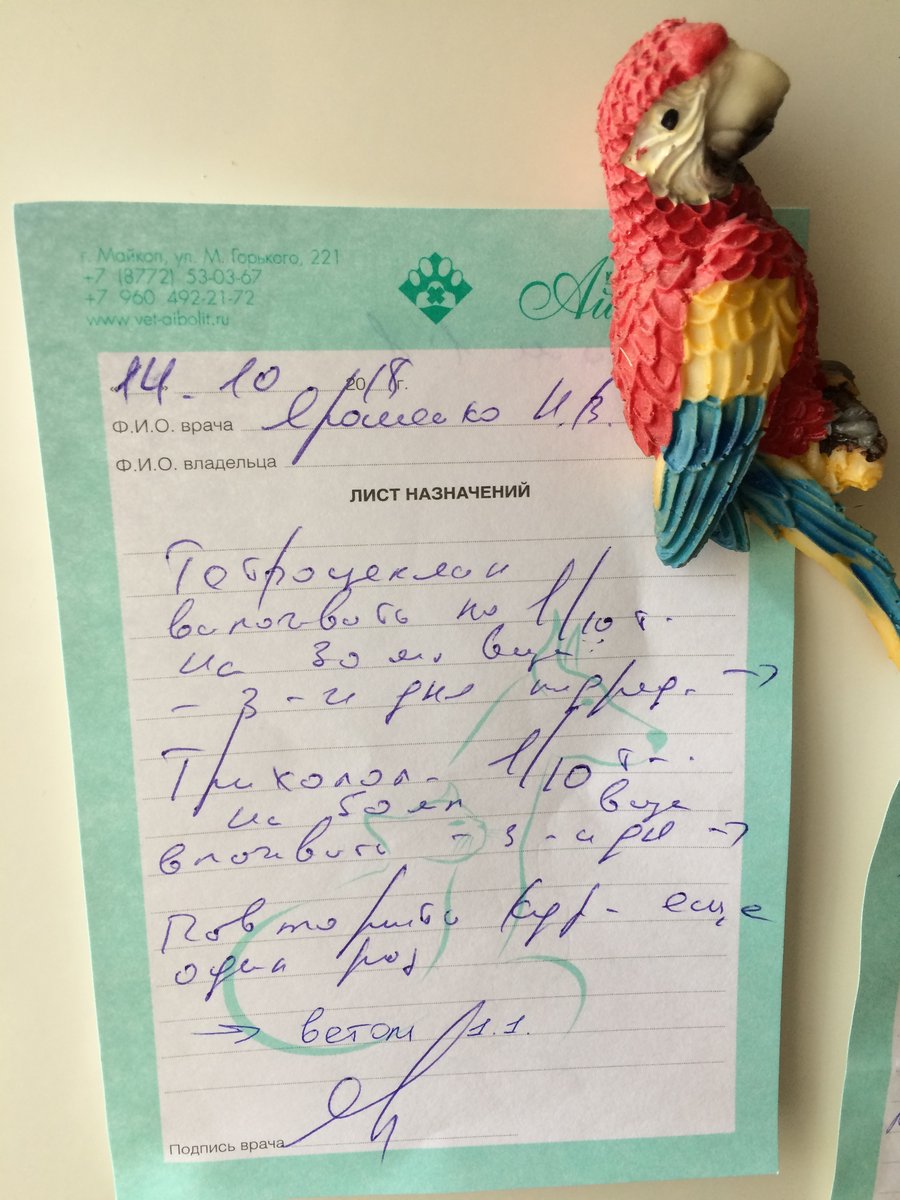 г. Майкоп, ул. М. Горького, 221
+7 (8772) 53-03-67
+7 960 492-21-72
www.vet-aibolit.ru
Ай
14.10 2018г.
Ф.И.О. врача Яроменко И.В.
Ф.И.О. владельца
ЛИСТ НАЗНАЧЕНИЙ
Тетрациклин
выпаивать по 1/10 т.
на 30 мл
- 3-и дня подряд. →
Трихопол - 1/10 т.
на 50 мл
- 3-и дн →
Повторить курс еще
один раз
→ ветом 1.1.
Подпись врача